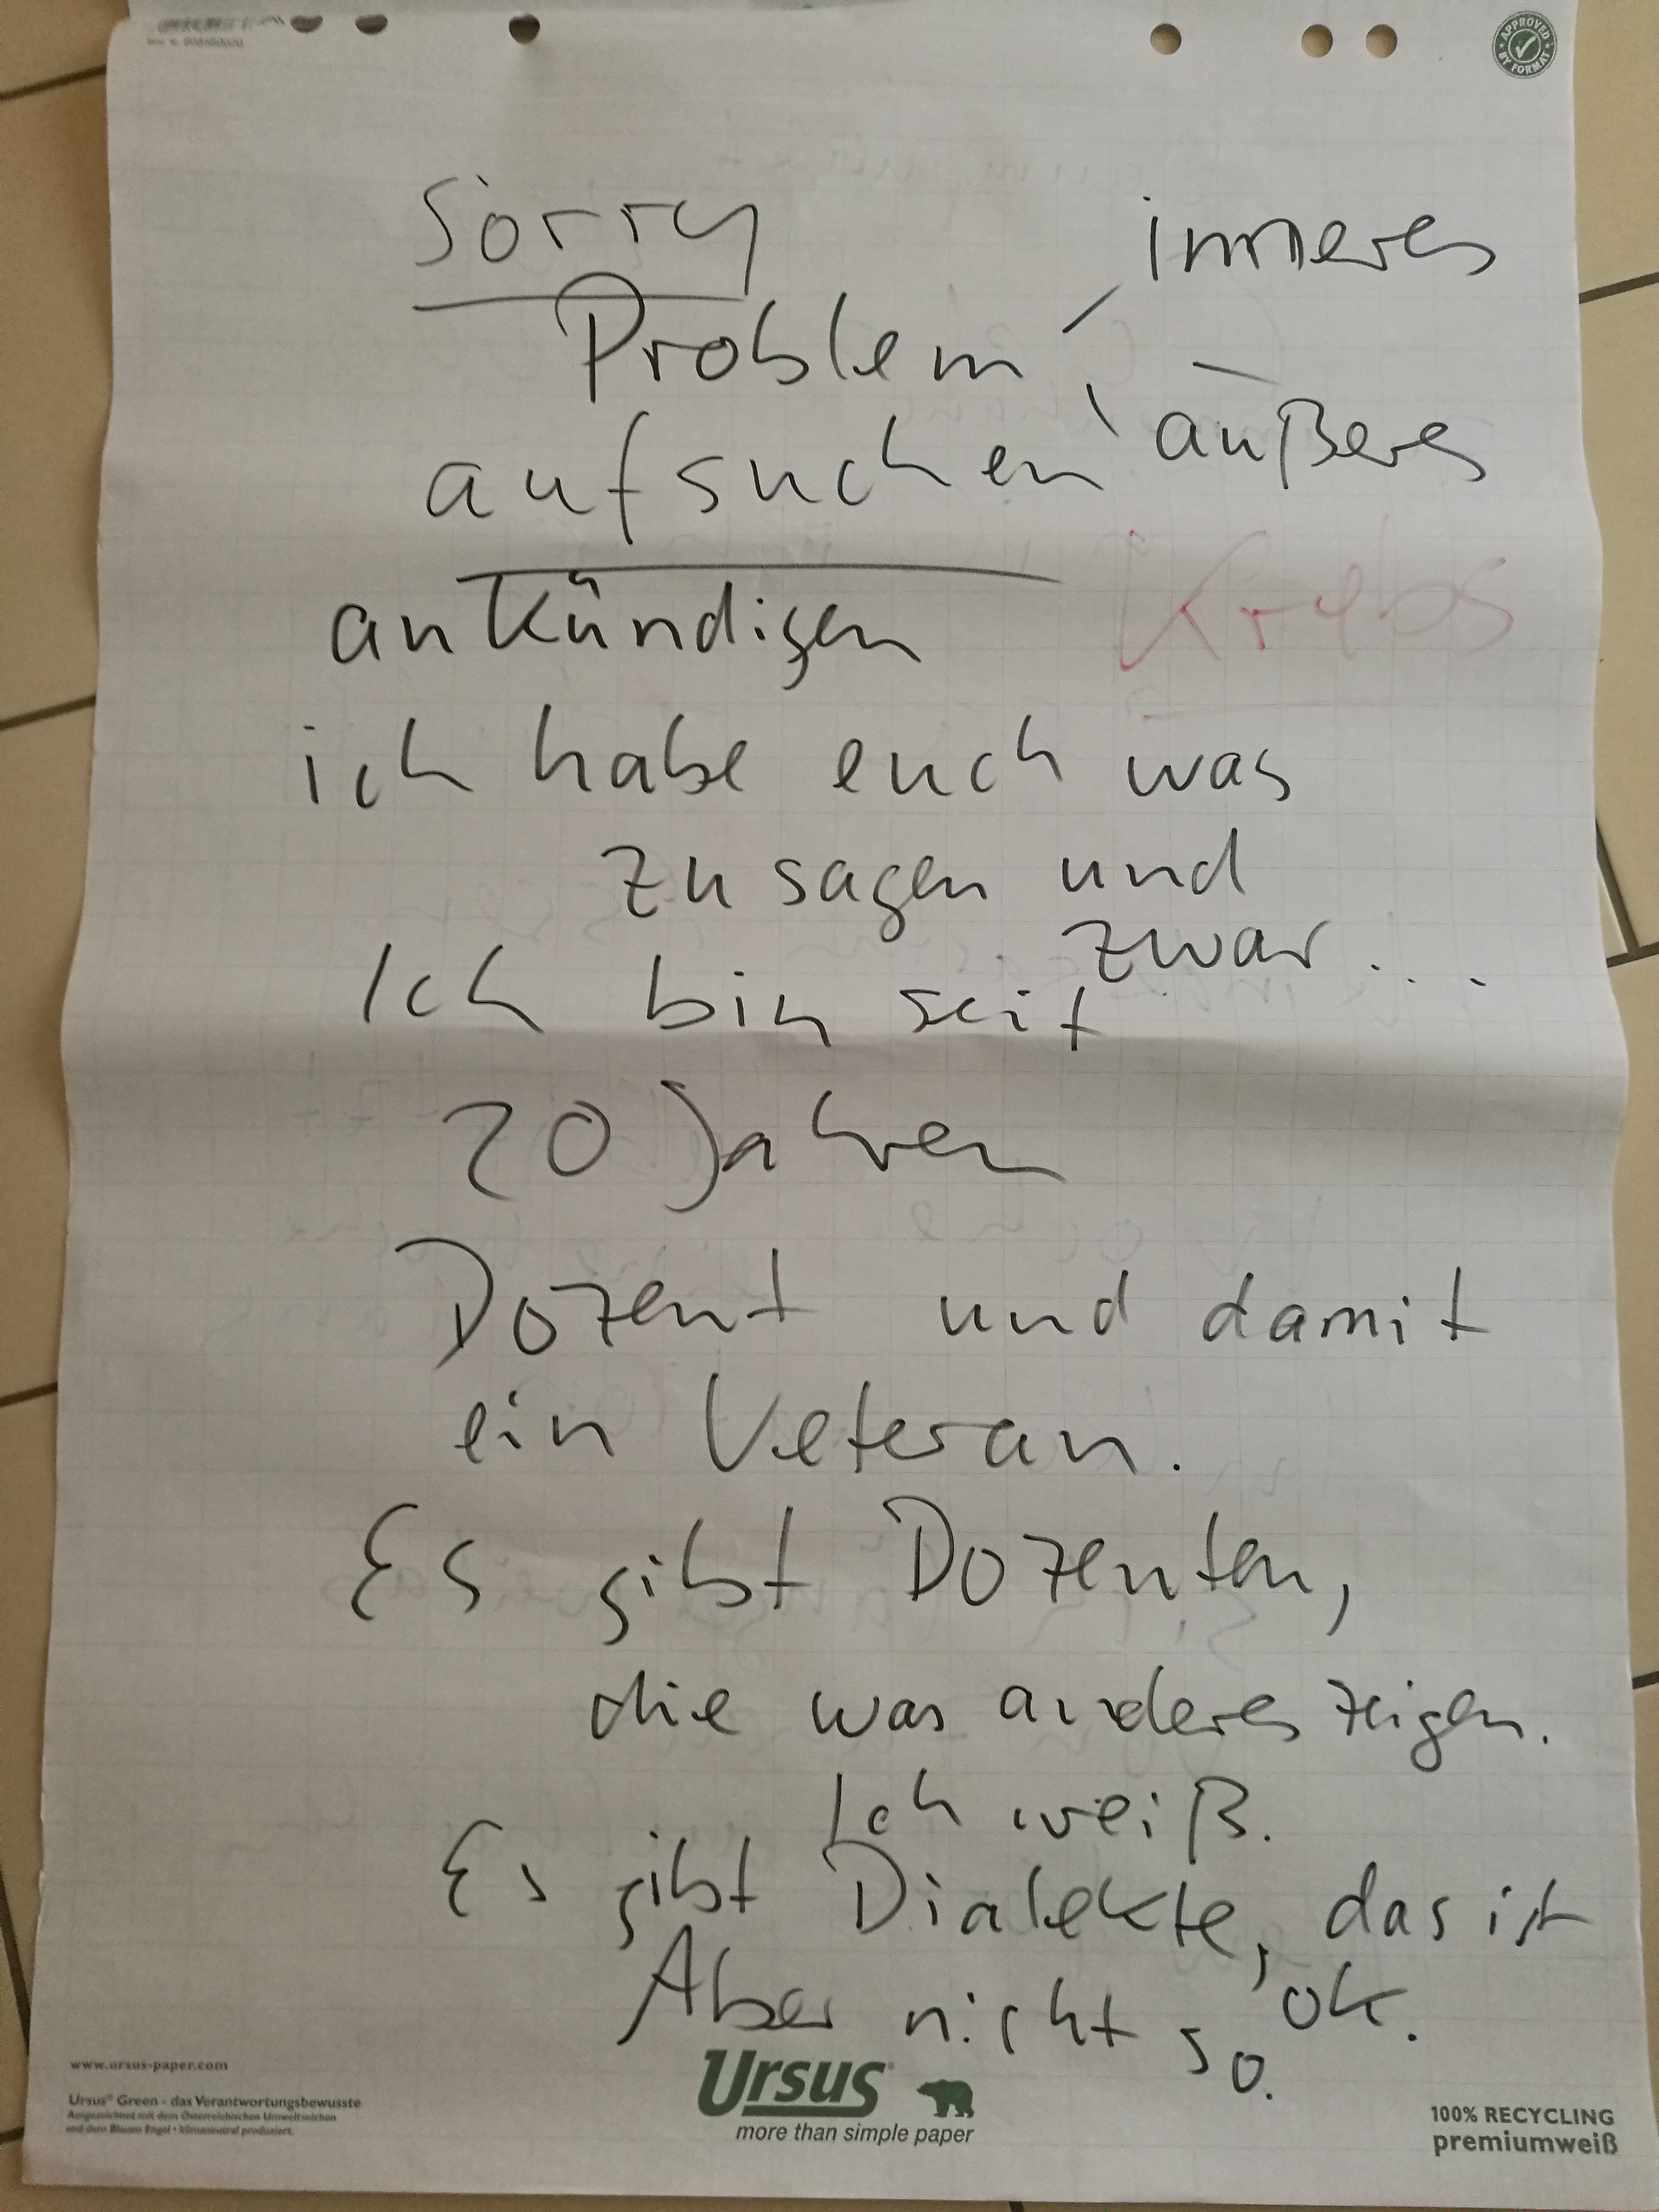 APPROVED BY FORMAT
Sorry
inneres
Problem
äußeres
aufsuchen
ankündigen
Krebs
ich habe euch was
zu sagen und
zwar...
Ich bin seit
20 Jahren
Dozent und damit
ein Veteran.
Es gibt Dozenten,
die was anderes zeigen.
Ich weiß.
Es gibt Dialekte, das ist
ok.
Aber nicht so.
www.ursus-paper.com
Ursus® Green - das Verantwortungsbewusste
Ausgezeichnet mit dem Österreichischen Umweltzeichen
und dem Blauen Engel • klimaneutral produziert.
Ursus®
more than simple paper
100% RECYCLING
premiumweiß